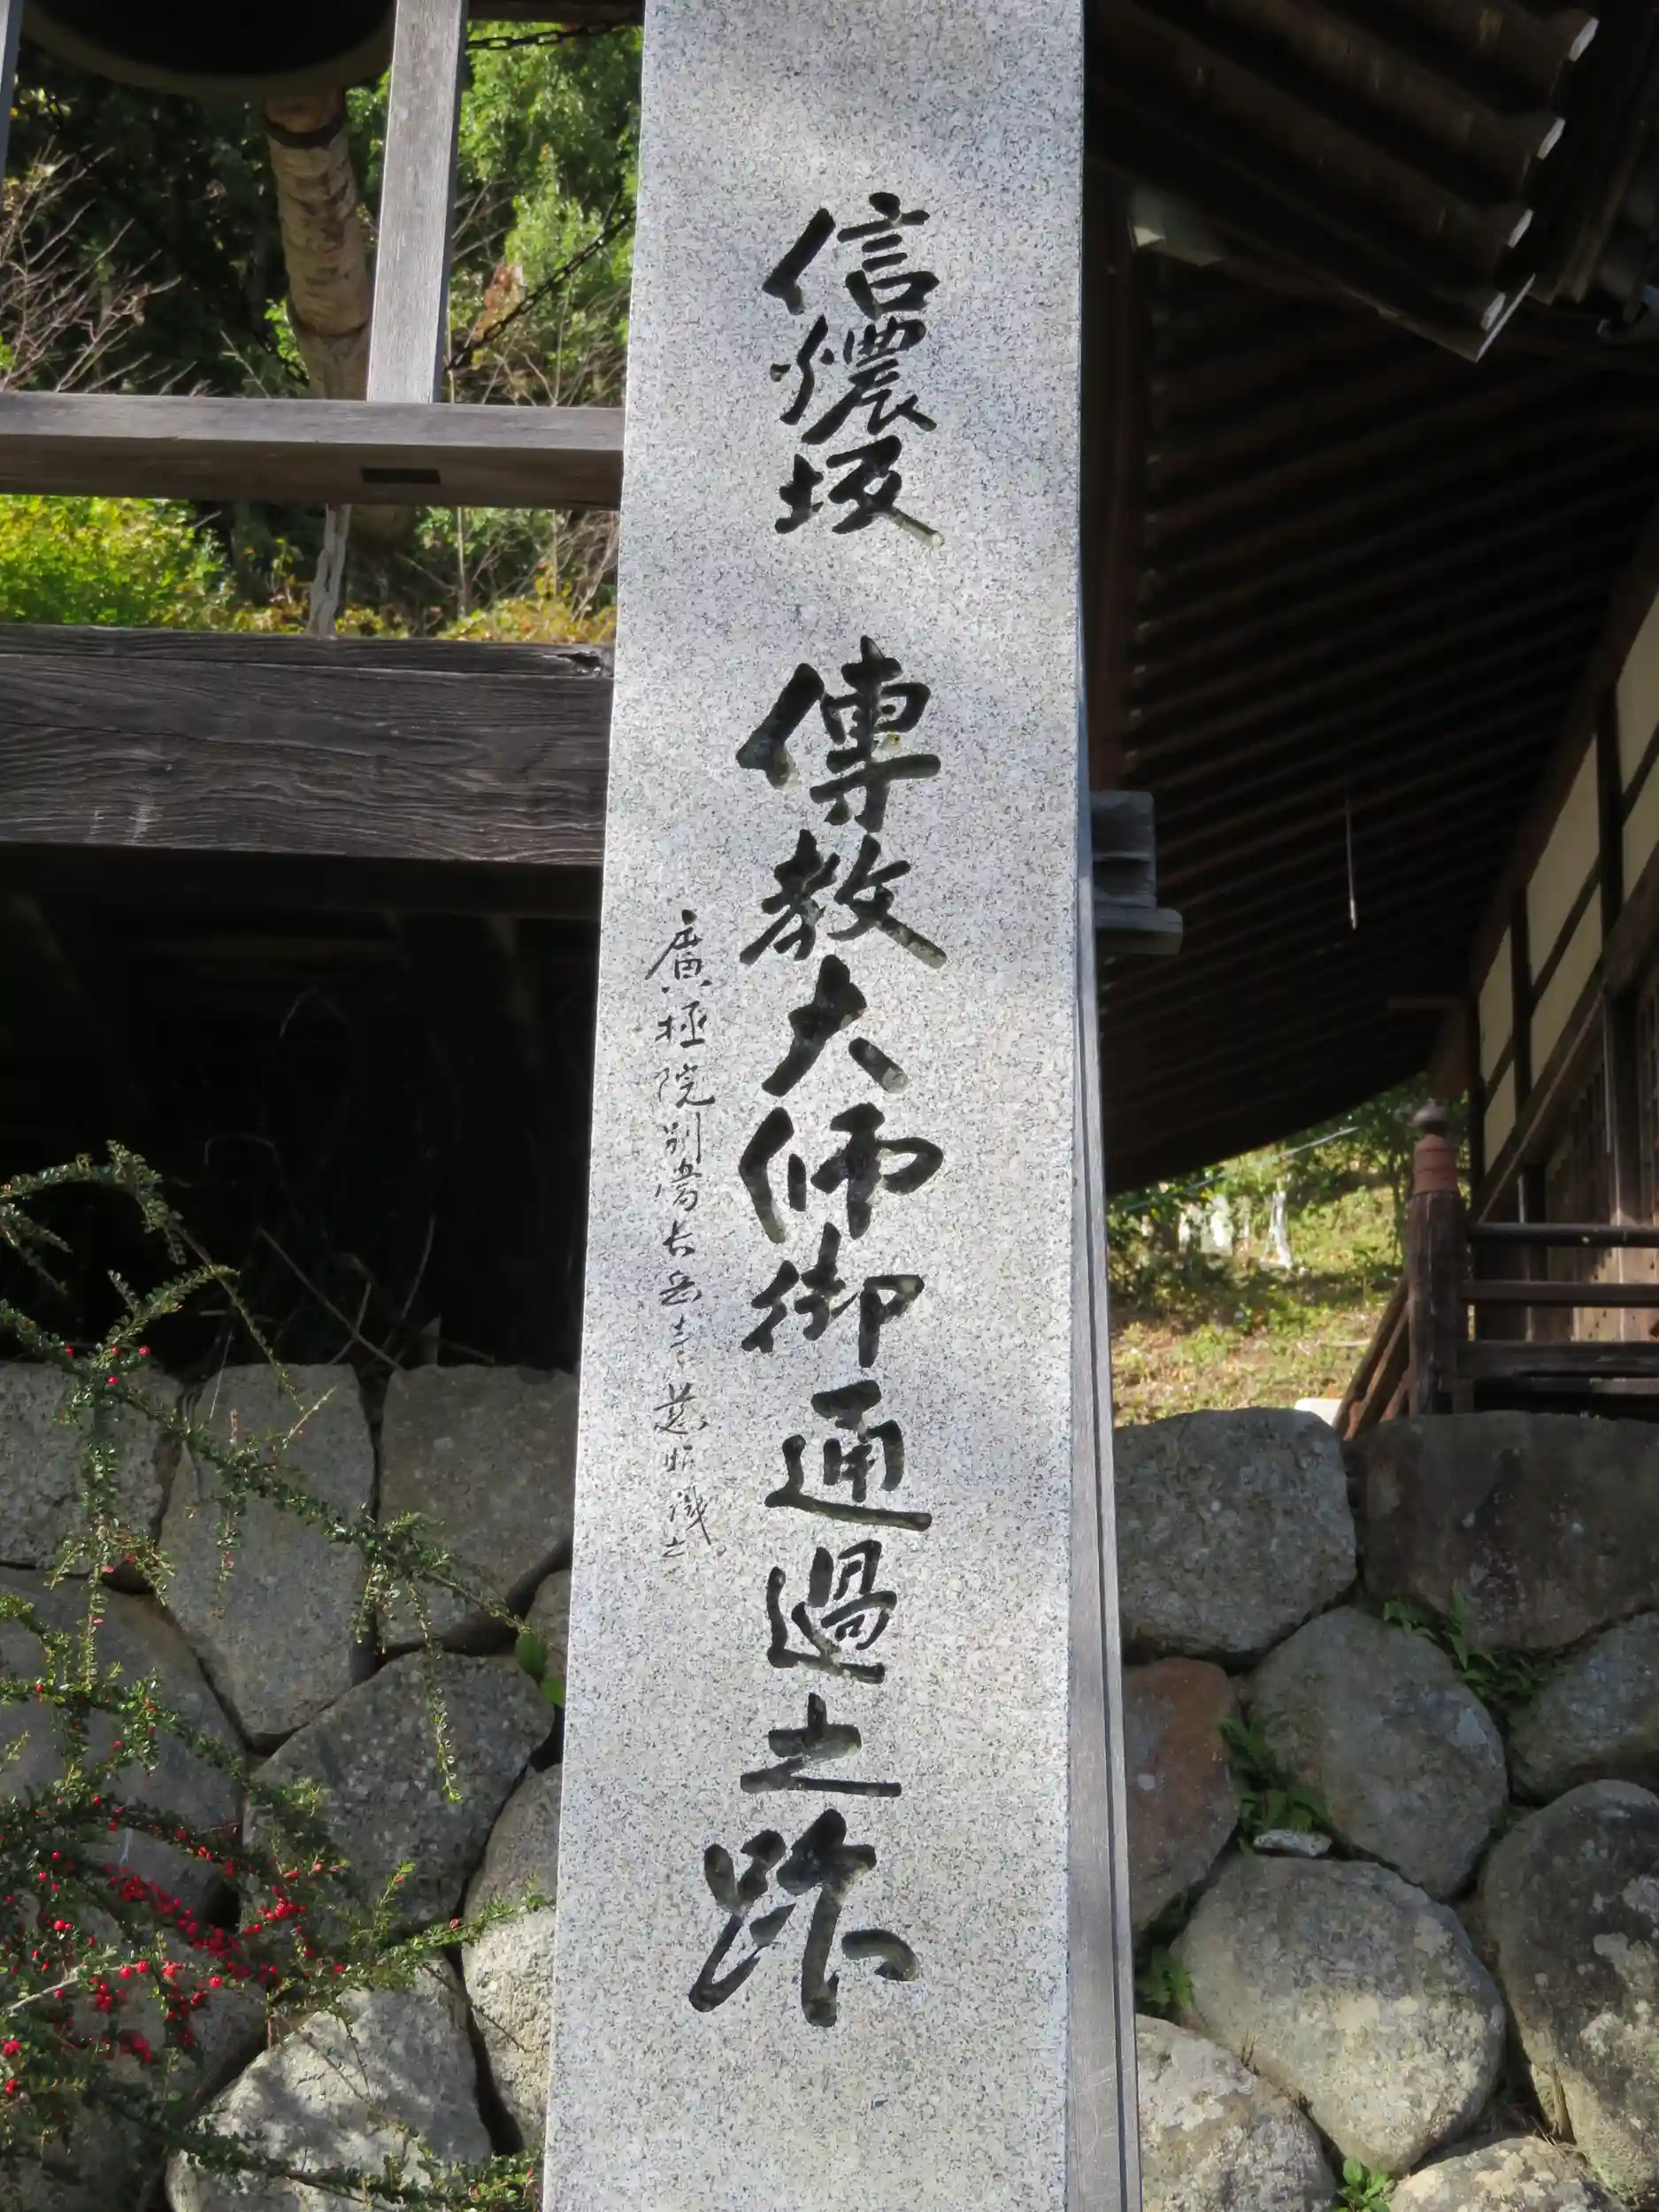 信濃坂 傳教大師御通過之跡
廣極院別當長岳寺慈昭識之